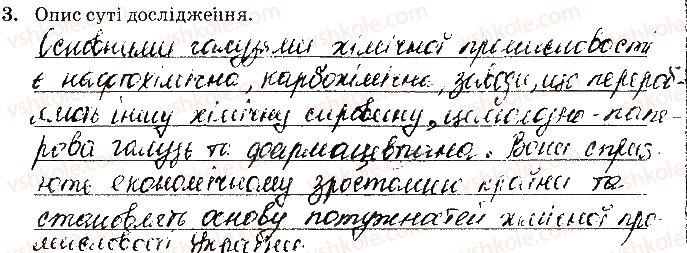 3. Опис суті дослідження.
Основними галузями хімічної промисловості
є нафтохімічна, карбохімічна, заводи, що перероб-
люють іншу хімічну сировину, целюлозно-папе-
рова галузь та фармацевтична. Вони сприя-
ють економічному зростанню країни та
становлять основу потужностей хімічної про-
мисловості України.